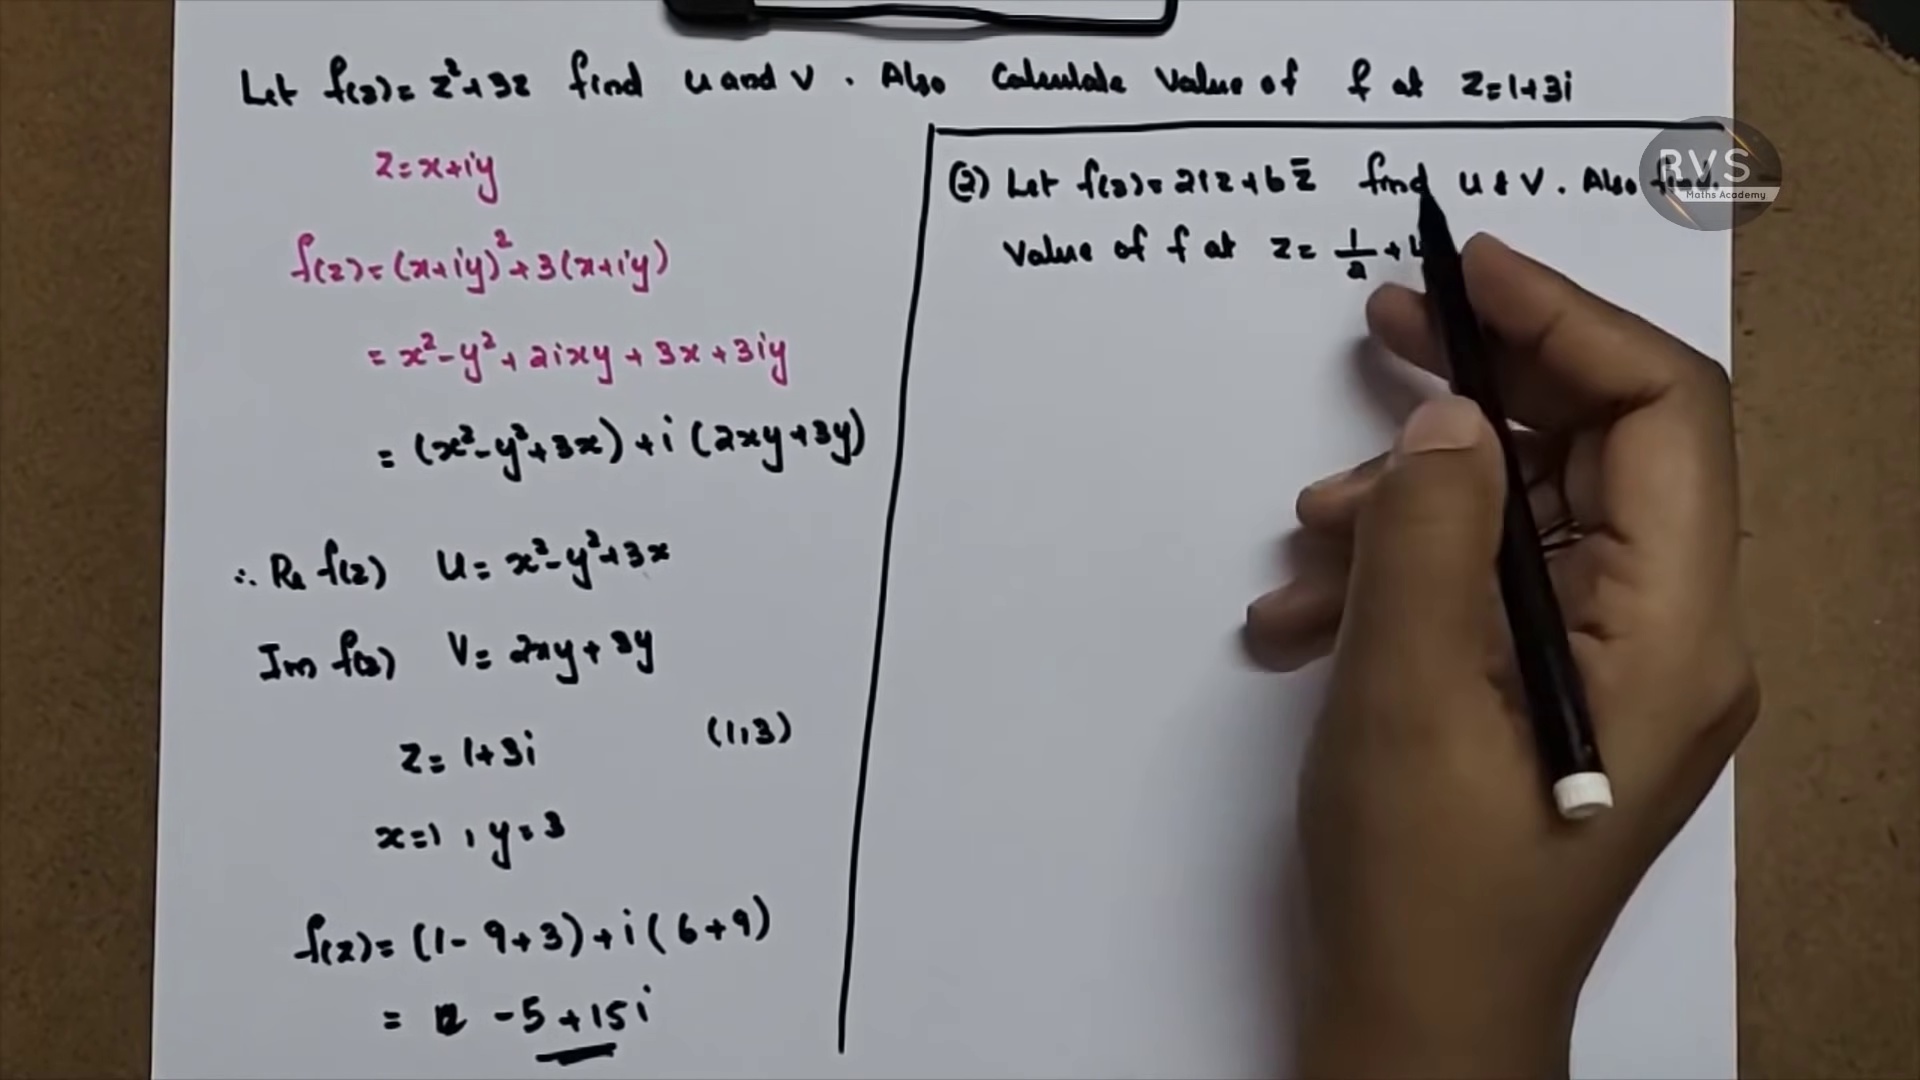 Let f(z) = z² + 3z find u and v. Also Calculate Value of f at z = 1+3i
z = x+iy
f(z) = (x+iy)² + 3(x+iy)
= x² - y² + 2ixy + 3x + 3iy
= (x² - y² + 3x) + i (2xy + 3y)
∴ Re f(z) u = x² - y² + 3x
Im f(z) v = 2xy + 3y
z = 1+3i (1,3)
x = 1, y = 3
f(z) = (1 - 9 + 3) + i (6 + 9)
= -5 + 15i
(2) Let f(z) = 2iz + 6z̄ find u & v. Also find
Value of f at z = 1/2 + 4
RVS
Maths Academy